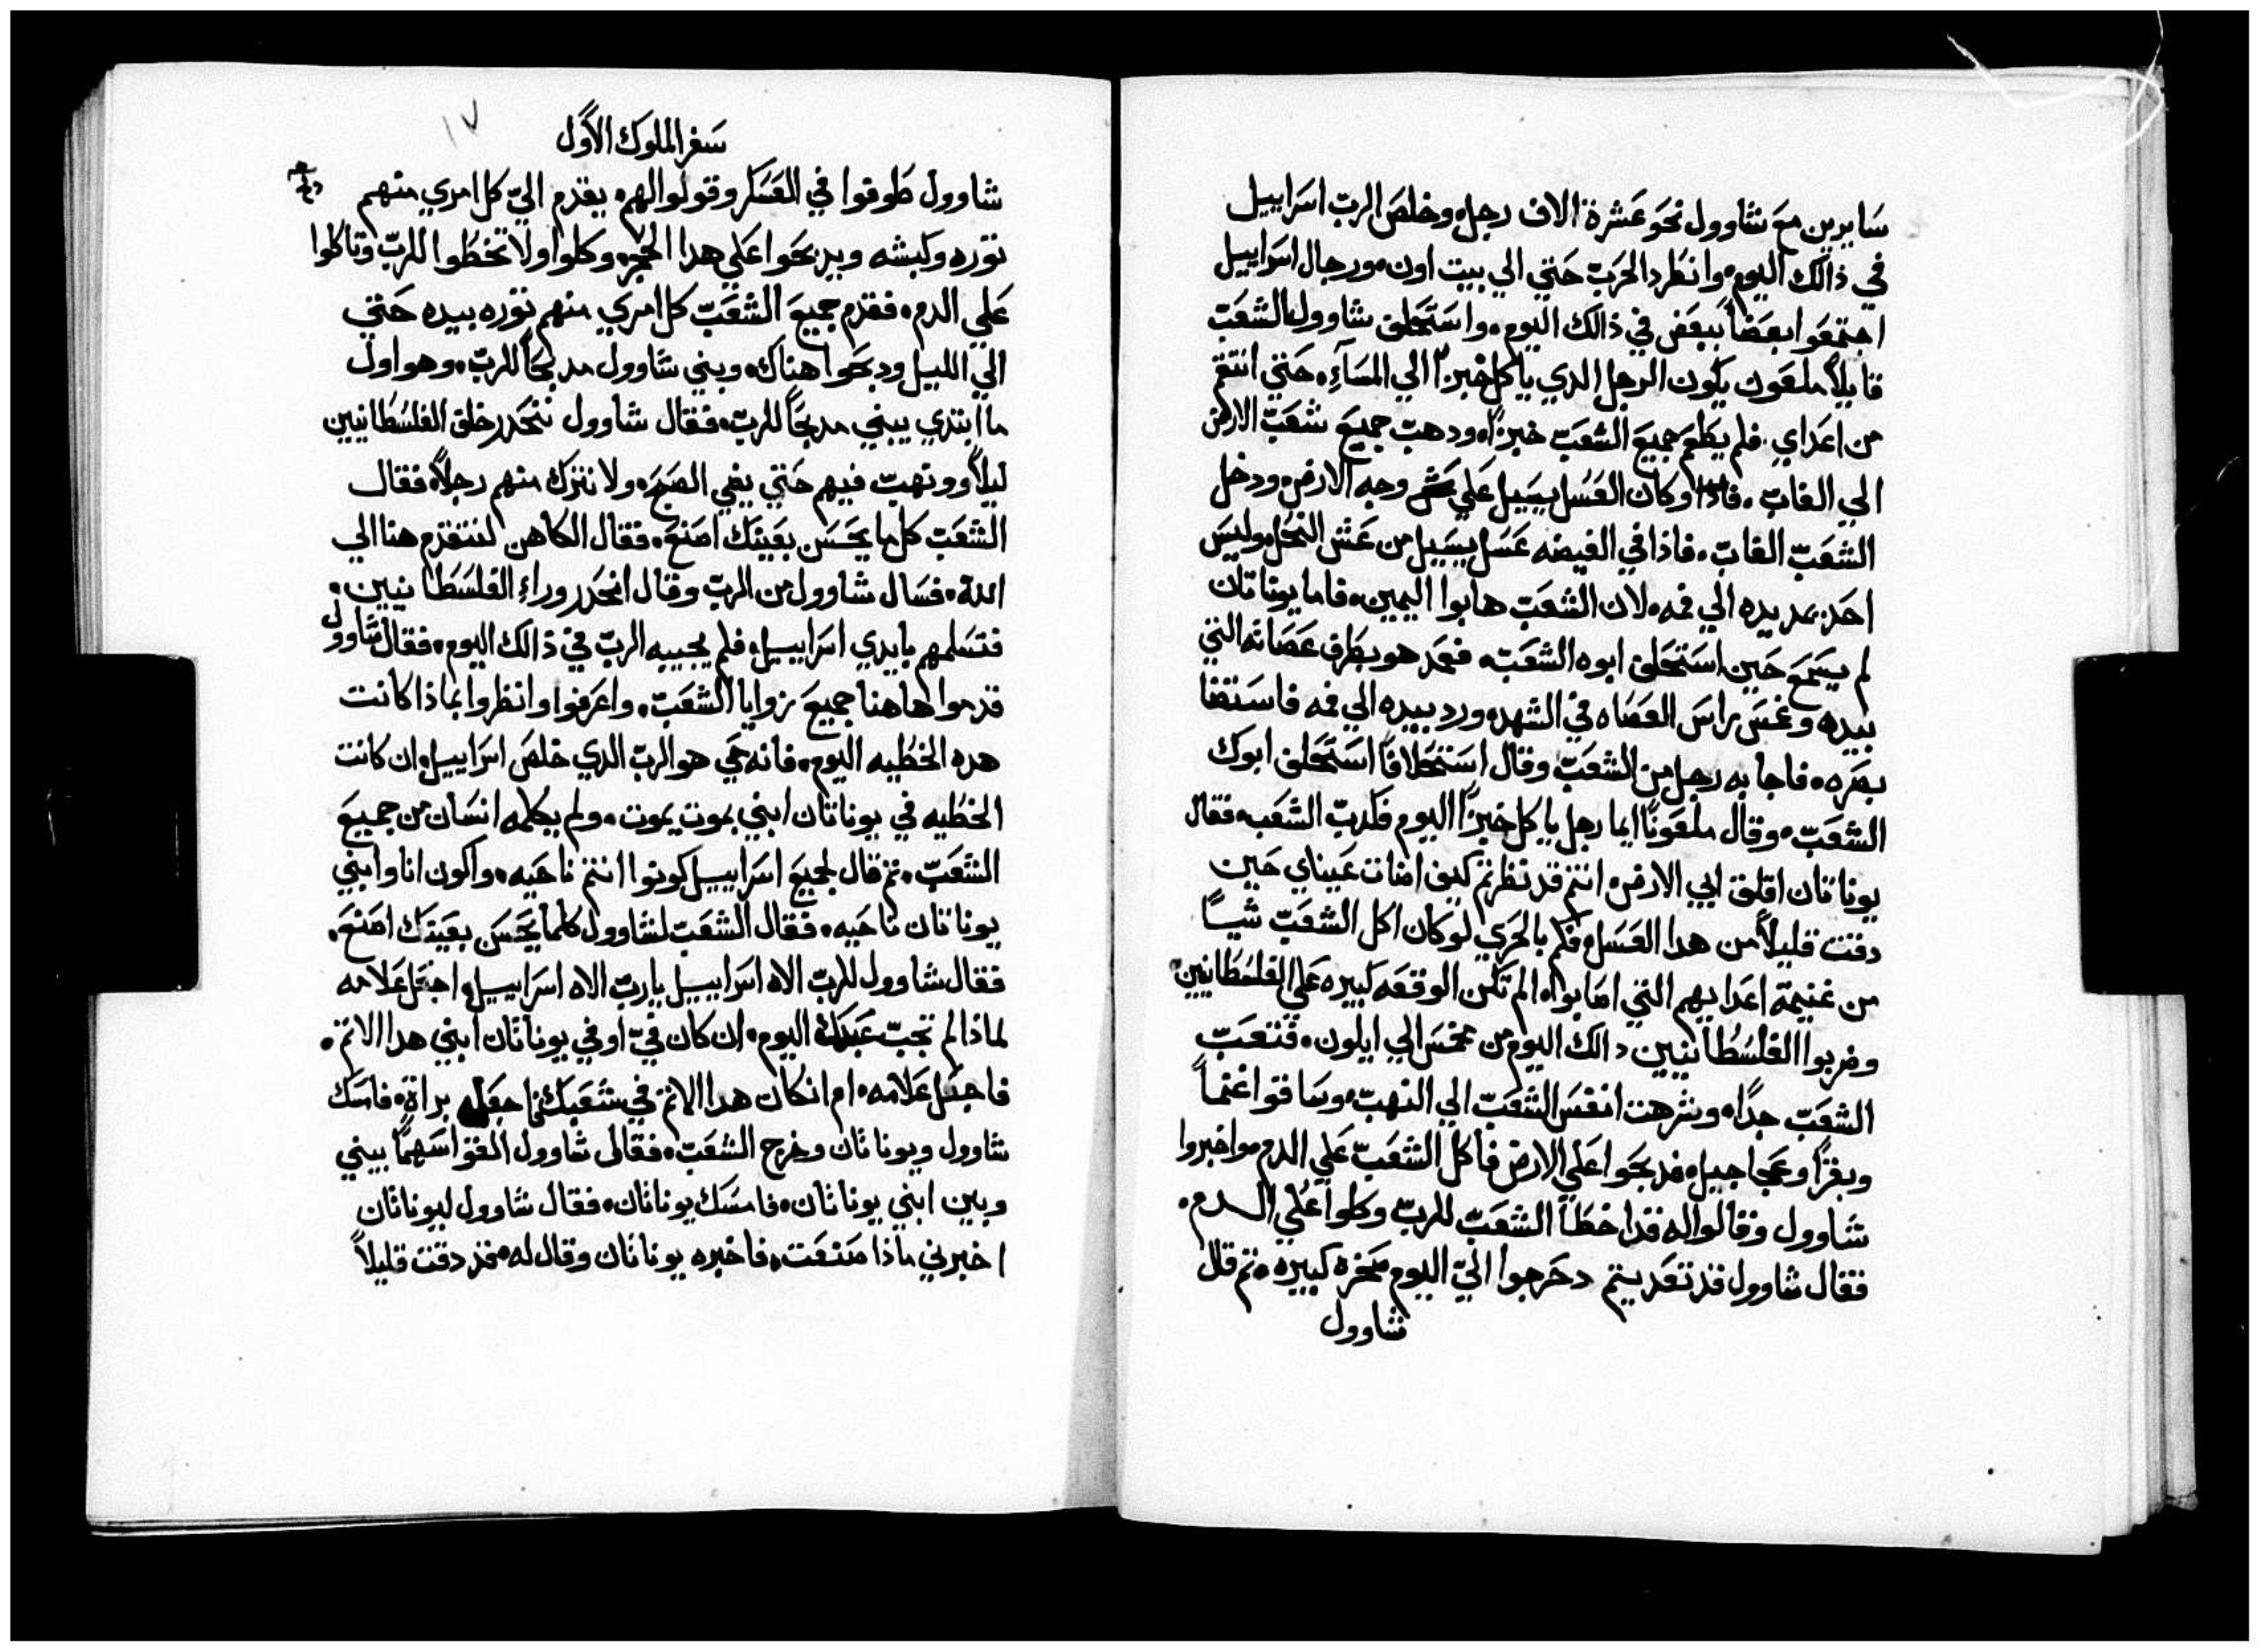 سايرين مع شاوول نحو عشرة الاف رجل. وخلص الرب اسراييل
في ذالك اليوم. وانطرد الحرب حتي الي بيت اون. ورجال اسراييل
اجتمعوا بعضاً ببعض في ذالك اليوم. واستحلف شاوول الشعب
قايلاً ملعون يكون الرجل الدي ياكل خبزاً الي المسآء. حتي انتقم
من اعداي. فلم يطعم جميع الشعب خبزاً. ودهب جميع شعب الارض
الي الغاب. وكان العسل يسيل علي وجه الارض. ودخل
الشعب الغاب. فاذا في الغيضه عسل يسيل من عش النحل. وليس
احد يمد يده الي فمه. لان الشعب هابوا اليمين. فاما يوناتان
لم يسمع حين استحلف ابوه الشعب. فمد هو بطرف عصاته التي
بيده وغمس راس العصاه في الشهد. ورد بيده الي فمه فاستضا
بصره. فاجابه رجل من الشعب وقال استحلافاً استحلف ابوك
الشعب. وقال ملعوناً ايما رجل ياكل خبزاً اليوم فكدب الشعب. فقال
يوناتان اقلق ابي الارض. انتم قد نظرتم كيف اضات عيناي حين
دقت قليلاً من هدا العسل. فكم بالحري لو كان اكل الشعب شياً
من غنيمة اعدايهم التي اصابوا. الم تكن الوقعه كبيره علي الفلسطانيين
وضربوا الفلسطانيين دالك اليوم من مخمس الي ايلون. فتعب
الشعب جداً. وشرهت انفس الشعب الي النهب. وساقوا غنماً
وبقراً وعجاجيل. فدبحوا علي الارض فاكل الشعب علي الدم. واخبروا
شاوول وقالوا له قد اخطأ الشعب للرب وكلوا علي الدم.
فقال شاوول قد تعديتم دحرجوا اليّ اليوم صخره كبيره. تم قال
شاوول
١٧
سفر الملوك الاول
شاوول طوفوا في العسكر وقولوا لهم. يقدم اليّ كل امري منهم
توره وكبشه ويدبحوا علي هدا الحجر. وكلوا ولا تخطوا للرب وتاكلوا
علي الدم. فقدم جميع الشعب كل امري منهم توره بيده حتي
الي الليل ودبحوا هناك. وبني شاوول مدبحاً للرب. وهو اول
ما ابتدي يبني مدبحاً للرب. فقال شاوول ننحدر خلف الفلسطانيين
ليلاً وننهب فيهم حتي يضي الصبح. ولا نترك منهم رجلاً. فقال
الشعب كل ما يحسن بعينك اصنع. فقال الكاهن لنتقدم هنا الي
الله. فسال شاوول من الرب وقال انحدر وراء الفلسطانيين.
فتسلمهم بايدي اسراييل. فلم يجيبه الرب في ذالك اليوم. فقال شاوول
قدموا هاهنا جميع زوايا الشعب. واعرفوا وانظروا بماذا كانت
هده الخطيه اليوم. فانه حي هو الرب الدي خلص اسراييل. ان كانت
الخطيه في يوناتان ابني بموت يموت. ولم يكلمه انسان من جميع
الشعب. تم قال لجميع اسراييل كونوا انتم ناحيه. واكون انا وابني
يوناتان ناحيه. فقال الشعب لشاوول كلما يحسن بعينك اصنع.
فقال شاوول للرب الاه اسراييل يا رب الاه اسراييل. اجعل علامه
لماذا لم تجب عبدك اليوم. ان كان فيّ او في يوناتان ابني هدا الاتم.
فاجعل علامه. ام ان كان هدا الاتم في شعبك اجعله براة. فامسك
شاوول ويوناتان وخرج الشعب. فقال شاوول القوا سهماً بيني
وبين ابني يوناتان. فامسك يوناتان. فقال شاوول ليوناتان
اخبرني ماذا صنعت. فاخبره يوناتان وقال له. قد دقت قليلاً